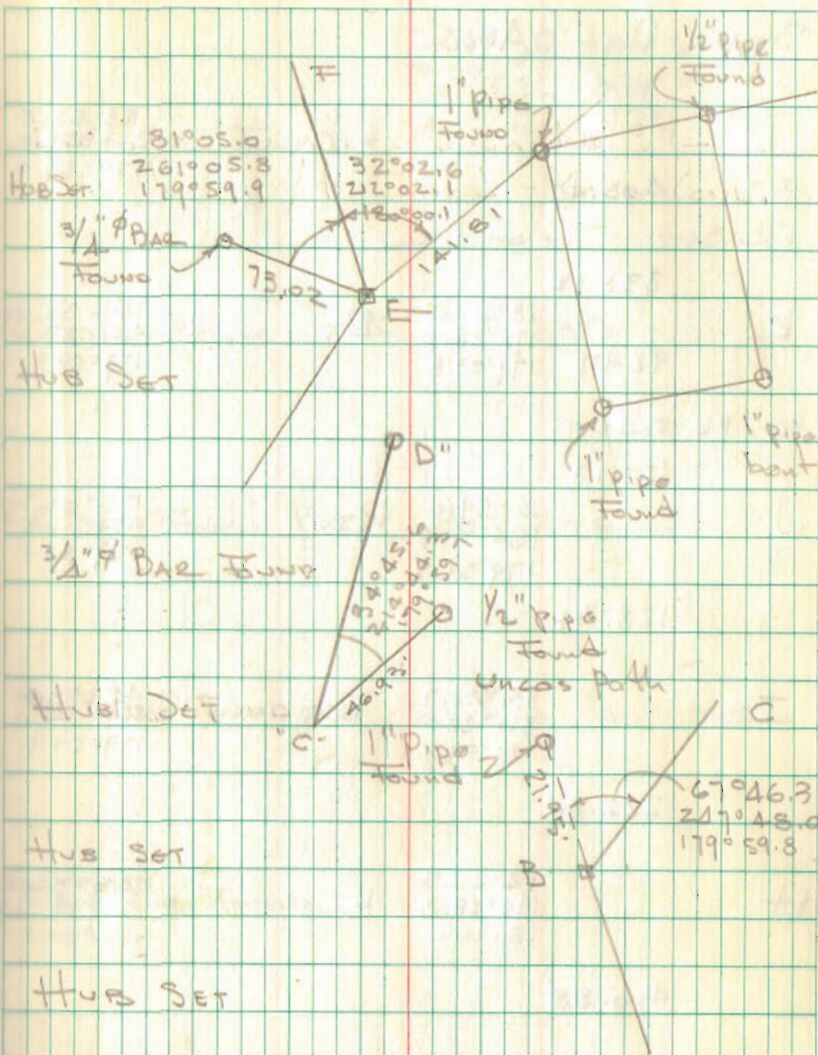 1/2" pipe
Found
F
1" pipe
Found
81°05.0
261°05.8
179°59.9
32°02.6
212°02.1
180°00.1
Hub Set
3/4" Ø BAR
Found
73.02
141.81
E
Hub Set
D"
1" pipe
bent
1" pipe
Found
3/4" Ø BAR Found
34°45.
214°44.
179°59.
1/2" pipe
Found
46.93
Hub Set
"C"
C
1" Pipe
Found
21.95
67°46.3
247°48.6
179°59.8
Hub Set
B
Hub Set